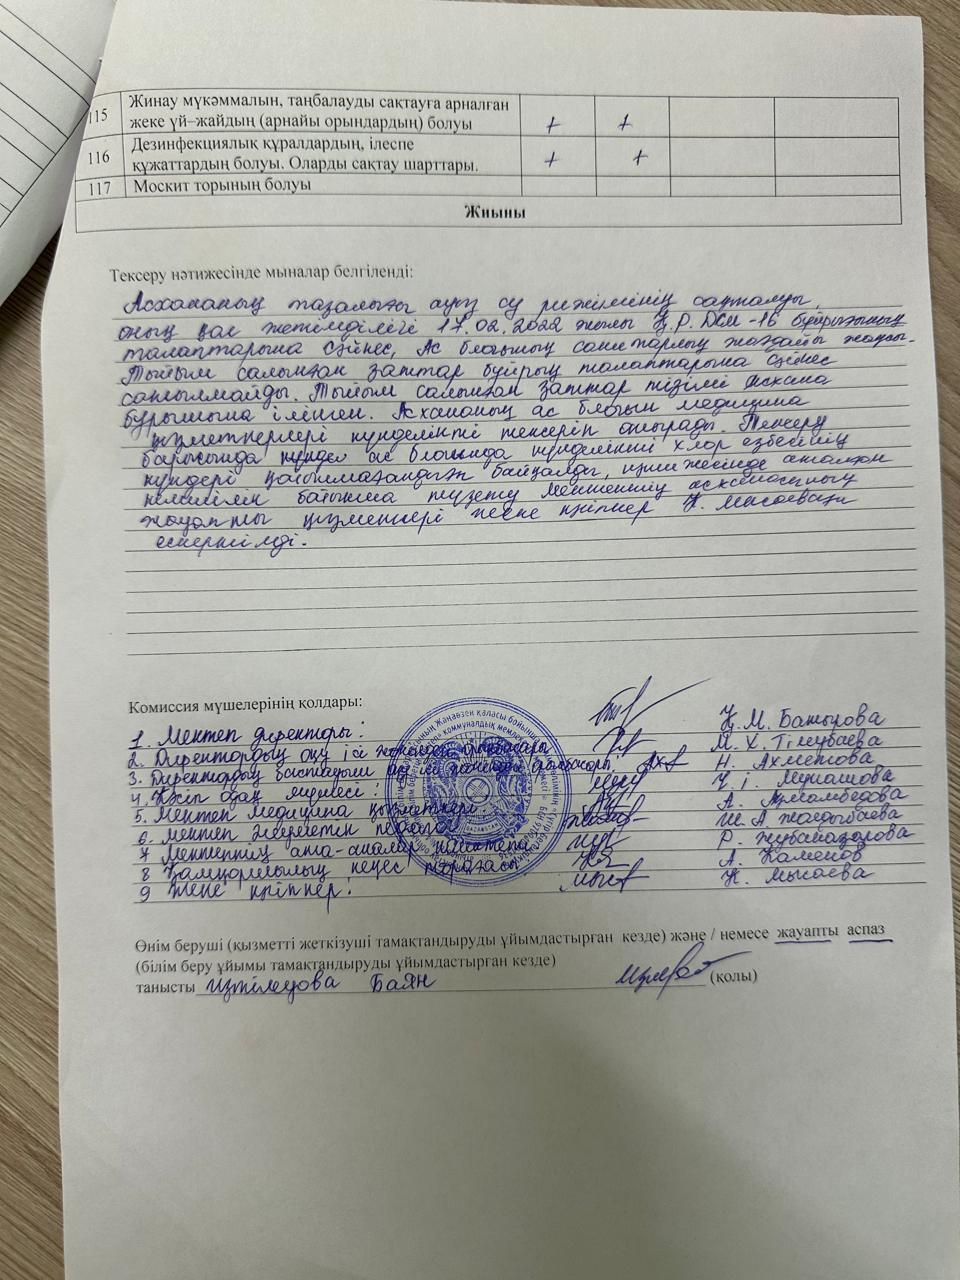 115 Жинау мүкәммалын, таңбалауды сақтауға арналған
жеке үй–жайдың (арнайы орындардың) болуы + +
116 Дезинфекциялық құралдардың, ілеспе
құжаттардың болуы. Оларды сақтау шарттары. + +
117 Москит торының болуы
Жиыны
Тексеру нәтижесінде мыналар белгіленді:
Асхананың тазалығы ауыз су режімінің сақталуы,
оның қол жетімділігі 17.02.2022 жылы Қ.Р. ДСМ-16 бұйрығының
талаптарына сәйкес, Ас блогының санитарлық жағдайы жақсы.
Тыйым салынған заттар бұйрық талаптарына сәйкес
сатылмайды. Тыйым салынған заттар тізімі асхана
бұрышына ілінген. Асхананың ас блогын медицина
қызметкерлері күнделікті тексеріп отырады. Тексеру
барысында ас блогында күнделікті хлор езбесінің
күндері байқалды, аталған
кемшілік бойынша түзету мектептің асханасының
жауапты қызметкері жеке кәсіпкер Қ. Мысаеваға
ескертілді.
Комиссия мүшелерінің қолдары:
1. Мектеп директоры: Қ.М. Бақырова
2. Директордың оқу ісі жөніндегі орынбасары М.Х. Тілеубаева
3. Директордың бастауыш оқу ісі жөніндегі орынбасары Н. Ахметова
4. Кәсіп одақ мүшесі:
5. Мектеп медицина қызметкері:
6. Мектеп әлеуметтік педагог
7 Мектептің ата-аналар комитеті
8 Қамқоршылық кеңес төрағасы А. Каменов
9 Жеке кәсіпкер: Қ. Мысаева
Өнім беруші (қызметті жеткізуші тамақтандыруды ұйымдастырған кезде) және / немесе жауапты аспаз
(білім беру ұйымы тамақтандыруды ұйымдастырған кезде)
танысты Изтілеуова Баян (қолы)